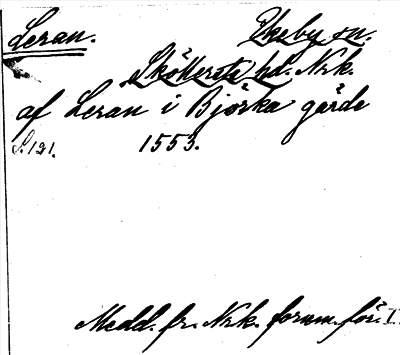 Leran. Ekeby sn.
Sköllersta hd. Nrk.
af Leran i Björka gärde
S. 121. 1553.
Medd. fr. Nrk. fornm. för. I.